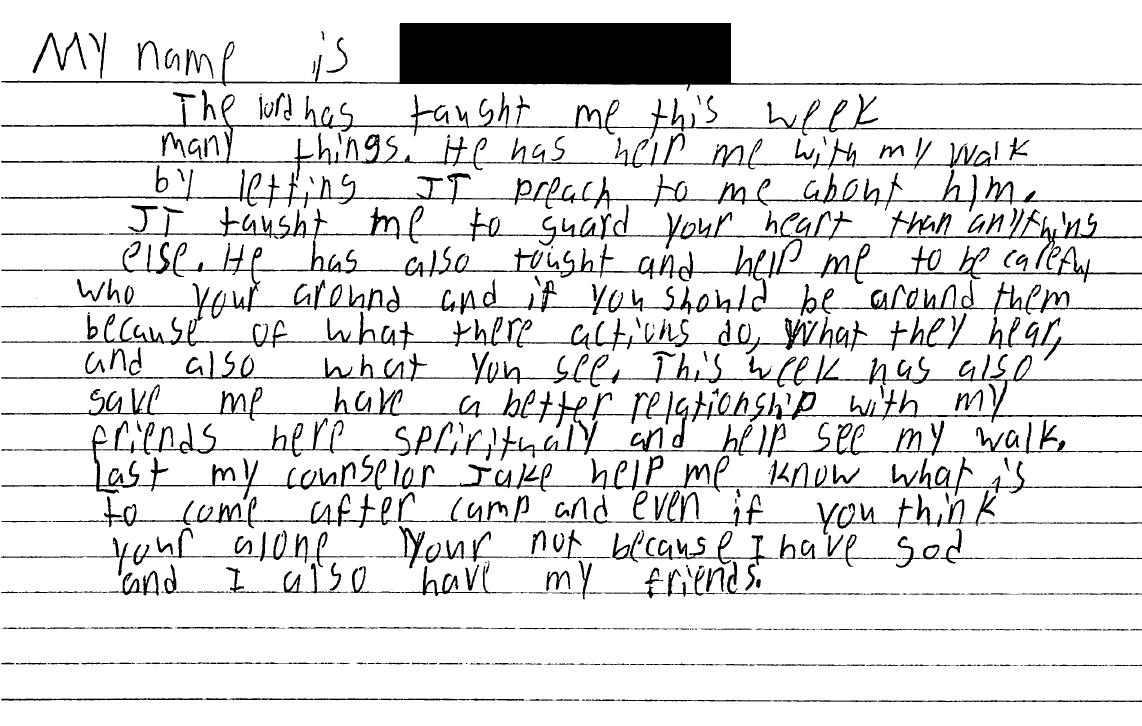 My name is
The lord has taught me this week
many things. He has help me with my walk
by letting JT preach to me about him.
JT taught me to guard your heart than anything
else. He has also tought and help me to be careful
who your around and if you should be around them
because of what there actions do, what they hear,
and also what you see. This week has also
gave me have a better relationship with my
friends here spriritualy and help see my walk.
Last my counselor Jake help me know what is
to come after camp and even if you think
your alone your not because I have god
and I also have my friends.